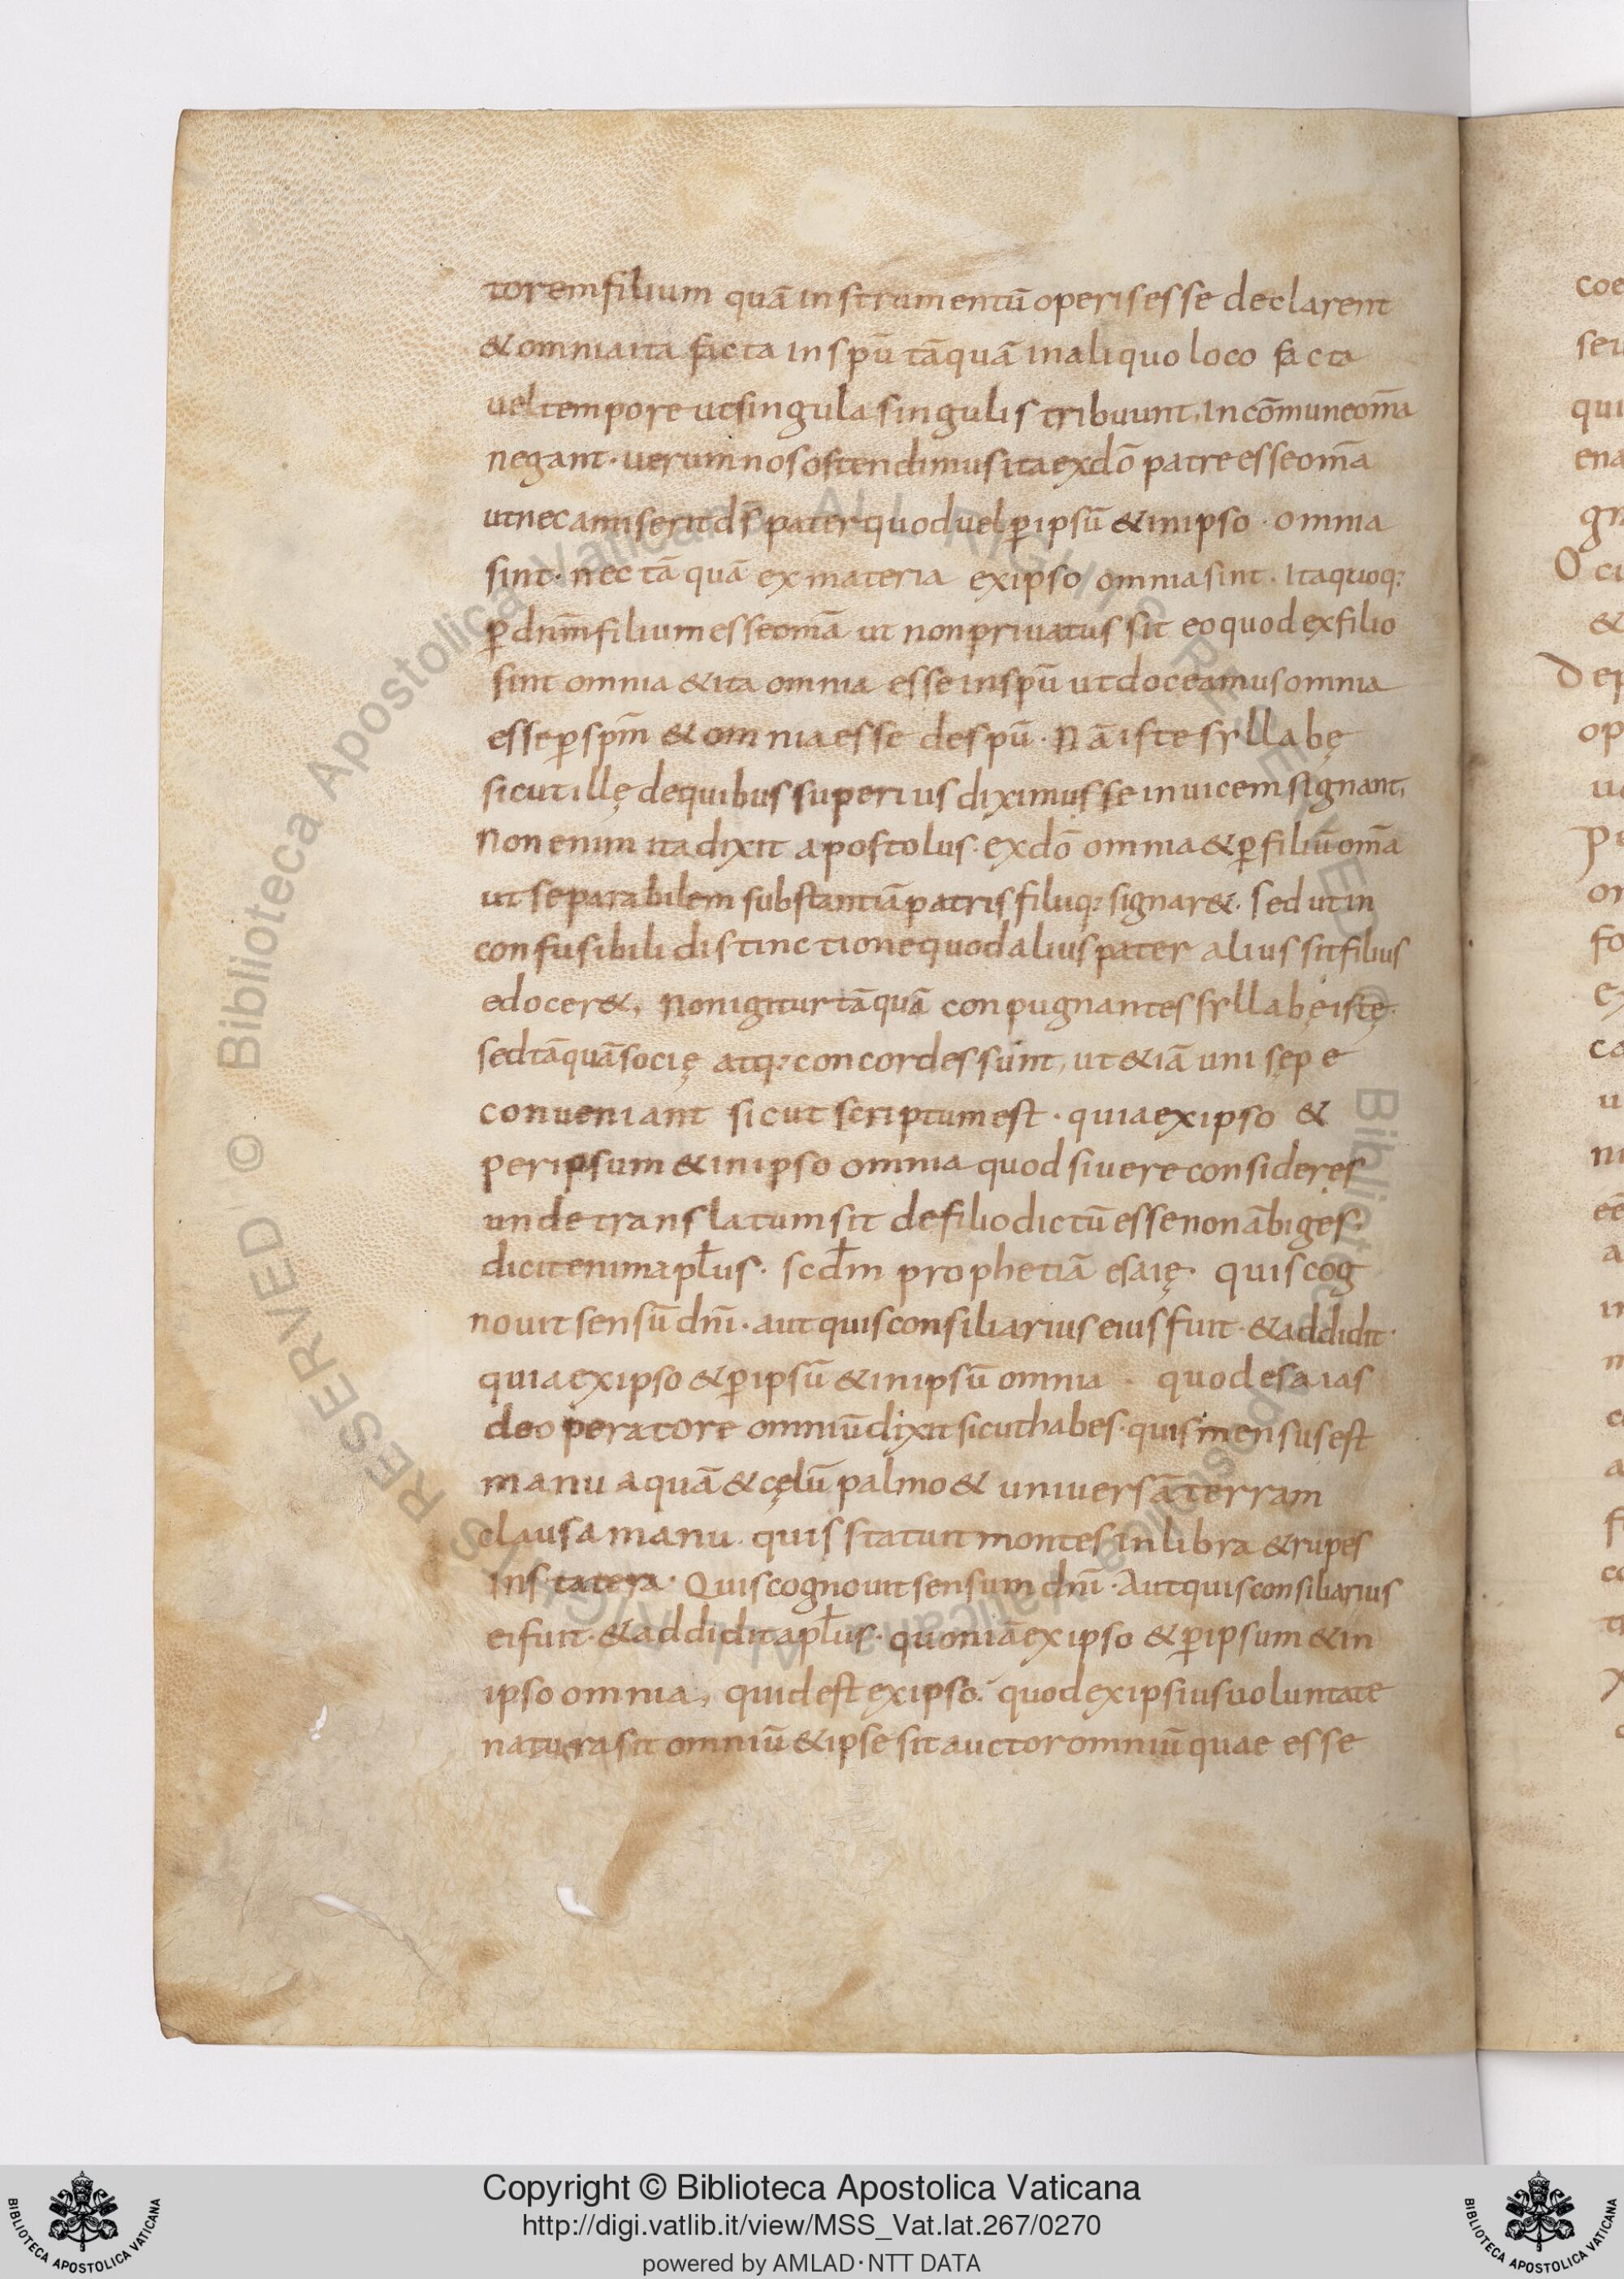 torem filium quā instrumentū operis esse declarent
& omnia ita facta in spū tāquā in aliquo loco facta
vel tempore ut singula singulis tribuunt, in cōmune om̄a
negant · verum nos ostendimus ita ex dō patre esse om̄a
ut nec amiserit ds̄ pater quod vel ꝑ ipsū & in ipso · omnia
sint · nec tā quā ex materia ex ipso omnia sint · Ita quoq;
ꝑ dnm̄ filium esse om̄a ut non privatus sit eo quod ex filio
sint omnia & ita omnia esse in spū ut doceamus omnia
esse ꝑ spm̄ & omnia esse de spū · Nā iste syllabę
sicut illę de quibus superius diximus se invicem signant,
Non enim ita dixit apostolus · ex dō omnia & ꝑ filiū om̄a
ut separabilem substantiā patris filiiq; signar& · sed ut in
confusibili distinctione quod alius pater alius sit filius
edocer&, Non igitur tāquā conpugnantes syllabę istę ·
sed tāquā socię atq; concordes sunt, ut &iā uni sępe
conveniant sicut scriptum est · quia ex ipso &
per ipsum & in ipso omnia quod si vere consideres
unde translatum sit de filio dictū esse non ābiges ·
dicit enim apłus · scd̄m prophetiā esaię · quis cog
novit sensū dnī · aut quis consiliarius eius fuit · & addidit ·
quia ex ipso & ꝑ ipsū & in ipsū omnia · quod esaias
de operatore omniū dixit sicut habes · quis mensus est
manu aquā & cęlū palmo & universā terram
clausa manu · quis statuit montes in libra & rupes
In statera · Quis cognovit sensum dnī · Aut quis consiliarius
ei fuit · & addidit apłus · quoniā ex ipso & ꝑ ipsum & in
ipso omnia, quid est ex ipso · quod ex ipsius voluntate
natura sit omniū & ipse sit auctor omniū quae esse
Copyright © Biblioteca Apostolica Vaticana
http://digi.vatlib.it/view/MSS_Vat.lat.267/0270
powered by AMLAD · NTT DATA